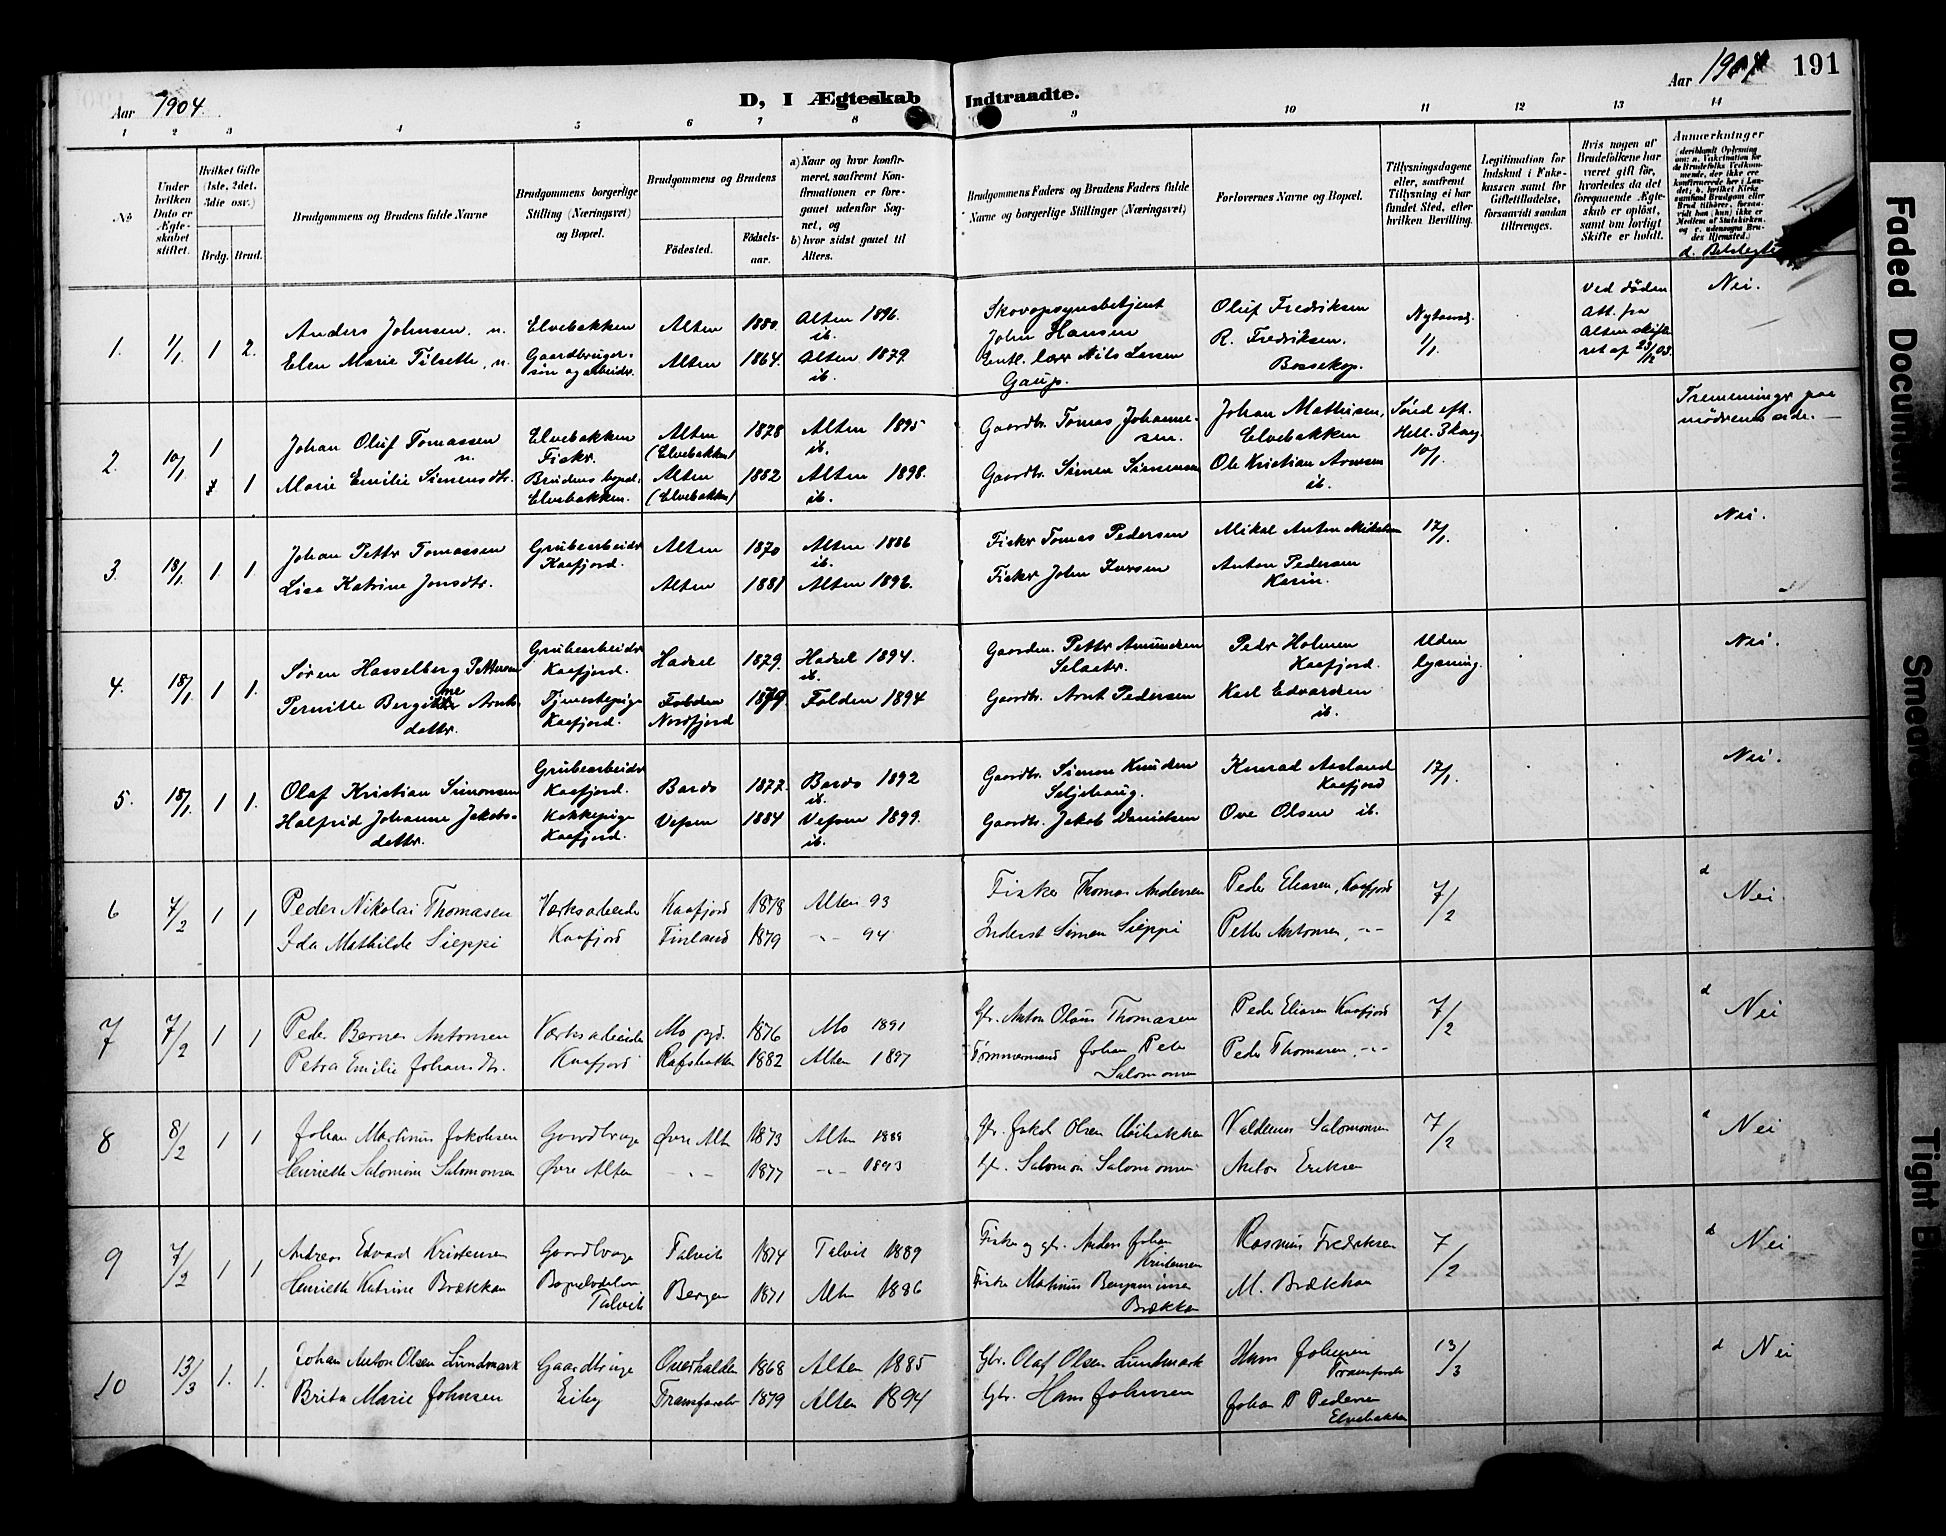 Aar 1904.
D, I Ægteskab Indtraadte.
Aar 1904 191
1 2 3 4 5 6 7 8 9 10 11 12 13 14
No
Under hvilken Dato er Ægteskabet stiftet.
Hvilket Gifte (1ste, 2det, 3die osv.)
Brdg. Brud.
Brudgommens og Brudens fulde Navne
Brudgommens borgerlige Stilling (Næringsvei) og Bopæl.
Brudgommens og Brudens
Födested. Födsels-aar.
a) Naar og hvor konfirmeret, saafremt Konfirmationen er foregaaet udenfor Sognet, og
b) hvor sidst gaaet til Alters.
Brudgommens Faders og Brudens Faders fulde Navne og borgerlige Stillinger (Næringsvei)
Forlovernes Navne og Bopæl.
Tillysningsdagene eller, saafremt Tillysning ei har fundet Sted, efter hvilken Bevilling.
Legitimation for Indskud i Enkekassen samt for Giftetilladelse, forsaavidt saadan tiltrænges.
Hvis nogen af Brudefolkene har været gift før, hvorledes da det foregaaende Ægteskab er oplöst, samt om lovligt Skifte er holdt.
Anmærkninger
1. 1/1 1 2. Anders Johnsen. n. Elvebakken Alten 1880. Alten 1896. ib. Skovopsynsbetjent John Hansen Oluf Fredriksen Nytaarsd. 1/1. Ved døden Att. fra Alten skifteret af 23/12 03. Nei.
Elen Marie Tilsette, n. Gaardbrugersøn og arbeidr. Alten 1864. Alten 1879. ib. Enkl. lærr Nils Larsen Gaup. R. Fredriksen. Bossekop.
2. 10/1 1 Johan Oluf Tomassen n. Elvebakken Fiskr. Alten (Elvebakken) 1878 Alten 1895 ib. Gaardbr. Tomas Johannesen. Johan Mathisen, Elvebakken Sønd eft. Hell. 3 Kong. 10/1. Tremenninger paa mødrene side.
1 Marie Emilie Simensdtr. Brudens bopæl. Elvebakken. Alten (Elvebakken) 1882 Alten 1898. ib. Gaardbr. Simen Simensen Ole Kristian Arnesen ib.
3. 18/1 1. 1. Johan Petter Tomassen Grubearbeidr Kaafjord. Alten 1870 Alten 1886 ib. Fiskr Tomas Pedersen Mikal Anton Mikkelsen 17/1. Nei.
Lisa Katrine Jonsdtr. Alten 1881 Alten 1896. Fiskr John Iversen Anton Pedersen
4. 18/1 1 1. Søren Hasselberg Pettersen Grubearbeidr Kaafjord. Hadsel 1879. Hadsel 1894. ib. Petter Amundsen Pedr Holmen Kaafjord. Uden lysning. Nei.
Pernille Bergitte Arntsdattr. Tjenestepige Kaafjord. Folden Nordfjord 1879. Folden 1894 Gaardbr. Arnt Pedersen Karl Edvardsen ib.
5. 18/1. 1 1. Olaf Kristian Simonsen Grubearbeidr Kaafjord. Bardo 1877. Bardo 1892 ib. Gaardbr. Simon Knudsen Seljehaug. Konrad Aasland Kaafjord 17/1. Nei.
Halfrid Johanne Jakobsdattr. Kokkepige Kaafjord. Vefsen 1884 Vefsen 1899. ib. Gaardbr. Jakob Danielsen Ove Olsen ib.
6 7/2 1 1 Peder Nikolai Thomasen Værksarbeider Kaafjord 1878 Alten 93 Fisker Thomas Andersen Peder Eliasen, Kaafjord 7/2 d Nei.
Ida Mathilde Sieppi Kaafjord Finland 1879 -"- 94 Inderst Simon Sieppi Petter Antonsen, -"-
7 7/2 1 1 Peder Berner Antonsen Værksarbeider Mo pgd. 1876 Mo 1891 Gbr. Anton Olaus Thomasen Peder Eliasen Kaafjord 7/2 d Nei
Petra Emilie Johansdtr. Kaafjord Rafsbotten 1882 Alten 1897 Tømmermand Johan Peter Salomonsen Peder Thomasen, -"-
8 8/2 1 1 Johan Martinus Jakobsen Gaardbruger Øvre Alten 1873 Alten 1888 Gbr. Jakob Olsen Valdemar Salomonsen 7/2 d Nei
Henriette Salomine Salomonsen Øvre Alten -"- 1877 -"- 1893 Salomon Salomonsen Anton Eriksen
9 7/2 1 1 Andreas Edvard Kristensen Gaardbruger Talvik 1874 Talvik 1889 Fisker og gbr. Anders Johan Kristensen Rasmus Fredriksen 7/2 d Nei
Henriette Katrine Brækkan Talvik Bergen 1871 Alten 1886 Fisker Martinus Benjaminsen Brækkan M. Brækkan
10 13/3 1. 1. Johan Anton Olsen Lundmark Gaardbruger Overhalden 1868 Alten 1885 Gbr. Olaf Olsen Lundmark Hans Johnsen Tranfarelv 13/3 d Nei
Brita Marie Johnsen Eiby Tranfarelv 1879 Alten 1894 Gbr. Hans Johnsen Johan P Pedersen Elvebakken
Faded Document
Smeared
Tight Bi